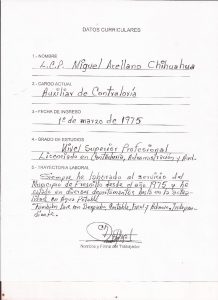 DATOS CURRICULARES
1.- NOMBRE
L.C.P. Miguel Arellano Chihuahua
2.- CARGO ACTUAL
Auxiliar de Contraloría
3.- FECHA DE INGRESO
1º de marzo de 1975
4.- GRADO DE ESTUDIOS
Nivel Superior Profesional
Licenciado en Contaduría, Administración y Aud.
5.- TRAYECTORIA LABORAL
Siempre he laborado al servicio del
Municipio de Fresnillo desde el año 1975 y he
estado en diversos departamentos hasta en la actua-
lidad en Agua Potable
También tuve un Despacho Contable, Fiscal y Admvo, Indepen-
diente.
Nombre y Firma del Trabajador